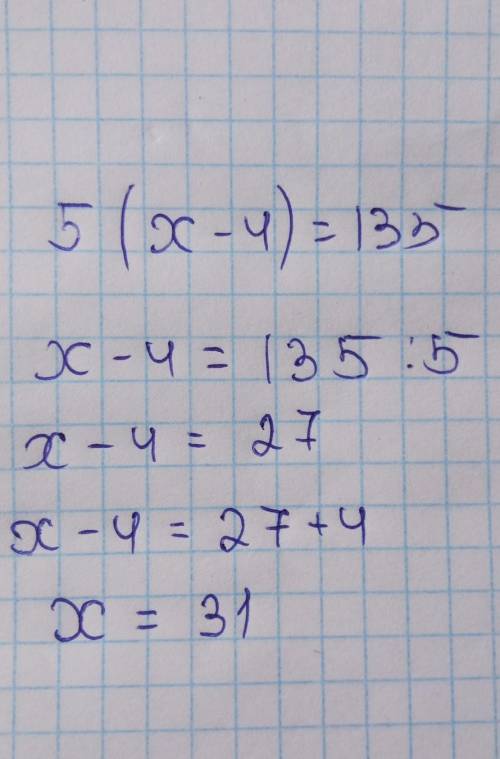 5 (x - 4) = 135
x - 4 = 135 : 5
x - 4 = 27
x - 4 = 27 + 4
x = 31